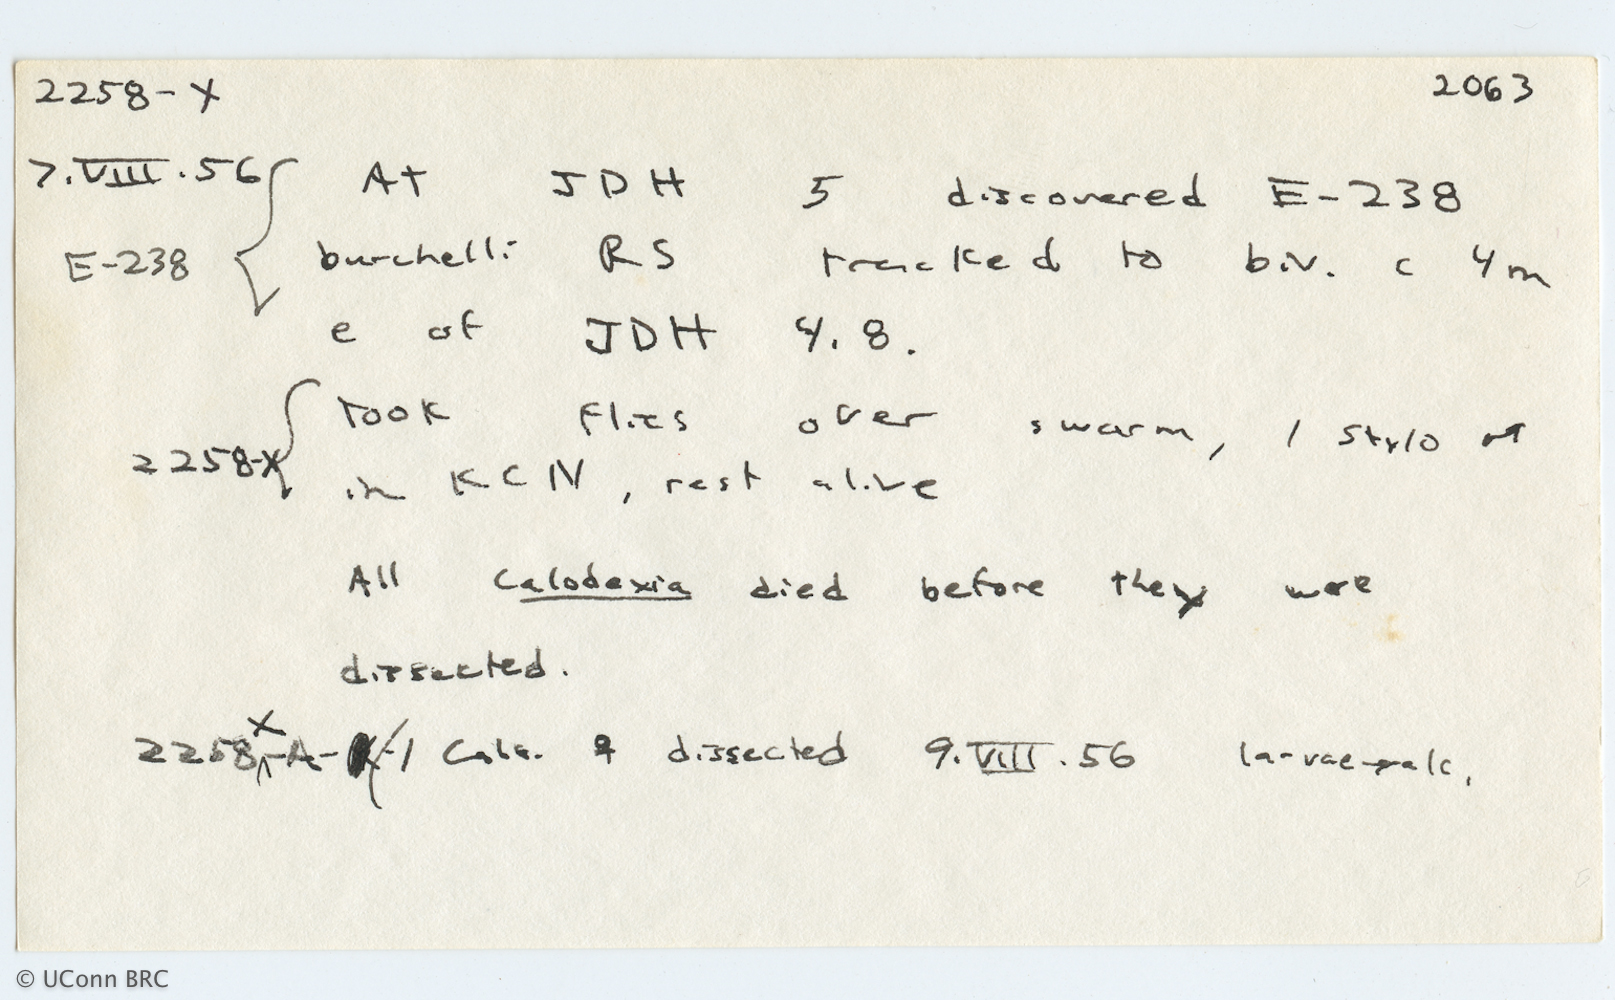 2258-X 2063
7.VIII.56 At JDH 5 discovered E-238
E-238 burchelli RS tracked to biv. c 4m
e of JDH 4.8.
Took flies over swarm, 1 Stylo
2258-X in KCN, rest alive
All Calodexia died before they were
dissected.
2258-X-A-1 Calo. ♀ dissected 9.VIII.56 larvae→alc.
© UConn BRC